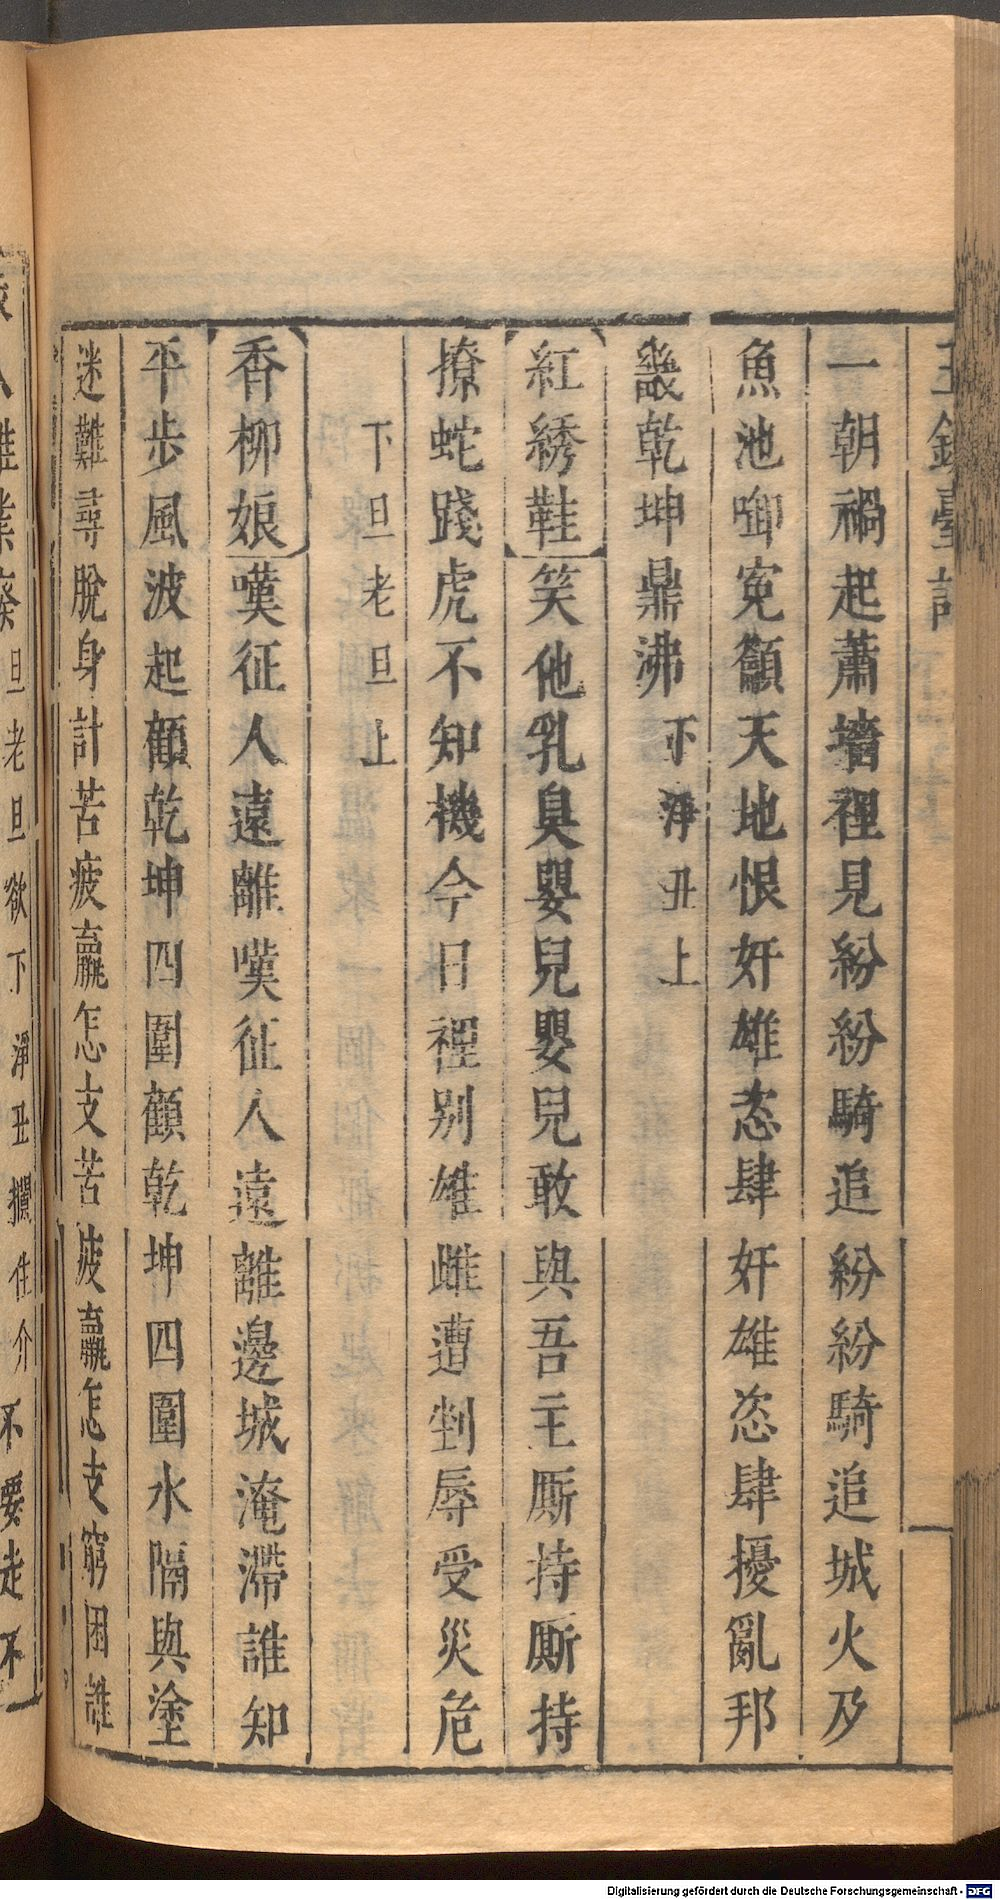 一朝禍起蕭墻裡見紛紛騎追紛紛騎追城火及
魚池啣冤籲天地恨奸雄恣肆奸雄恣肆擾亂邦
畿乾坤鼎沸下淨丑上
紅綉鞋笑他乳臭嬰兒嬰兒敢與吾主厮持厮持
撩蛇踐虎不知機今日裡别雄雌遭剉辱受災危
下旦老旦上
香柳娘嘆征人遠離嘆征人遠離邊城淹滯誰知
平步風波起顧乾坤四圍顧乾坤四圍水隔與塗
迷難尋脫身計苦疲羸怎支苦疲羸怎支窮困誰
旦老旦欲下淨丑攔住介不要走不
Digitalisierung gefördert durch die Deutsche Forschungsgemeinschaft - DFG